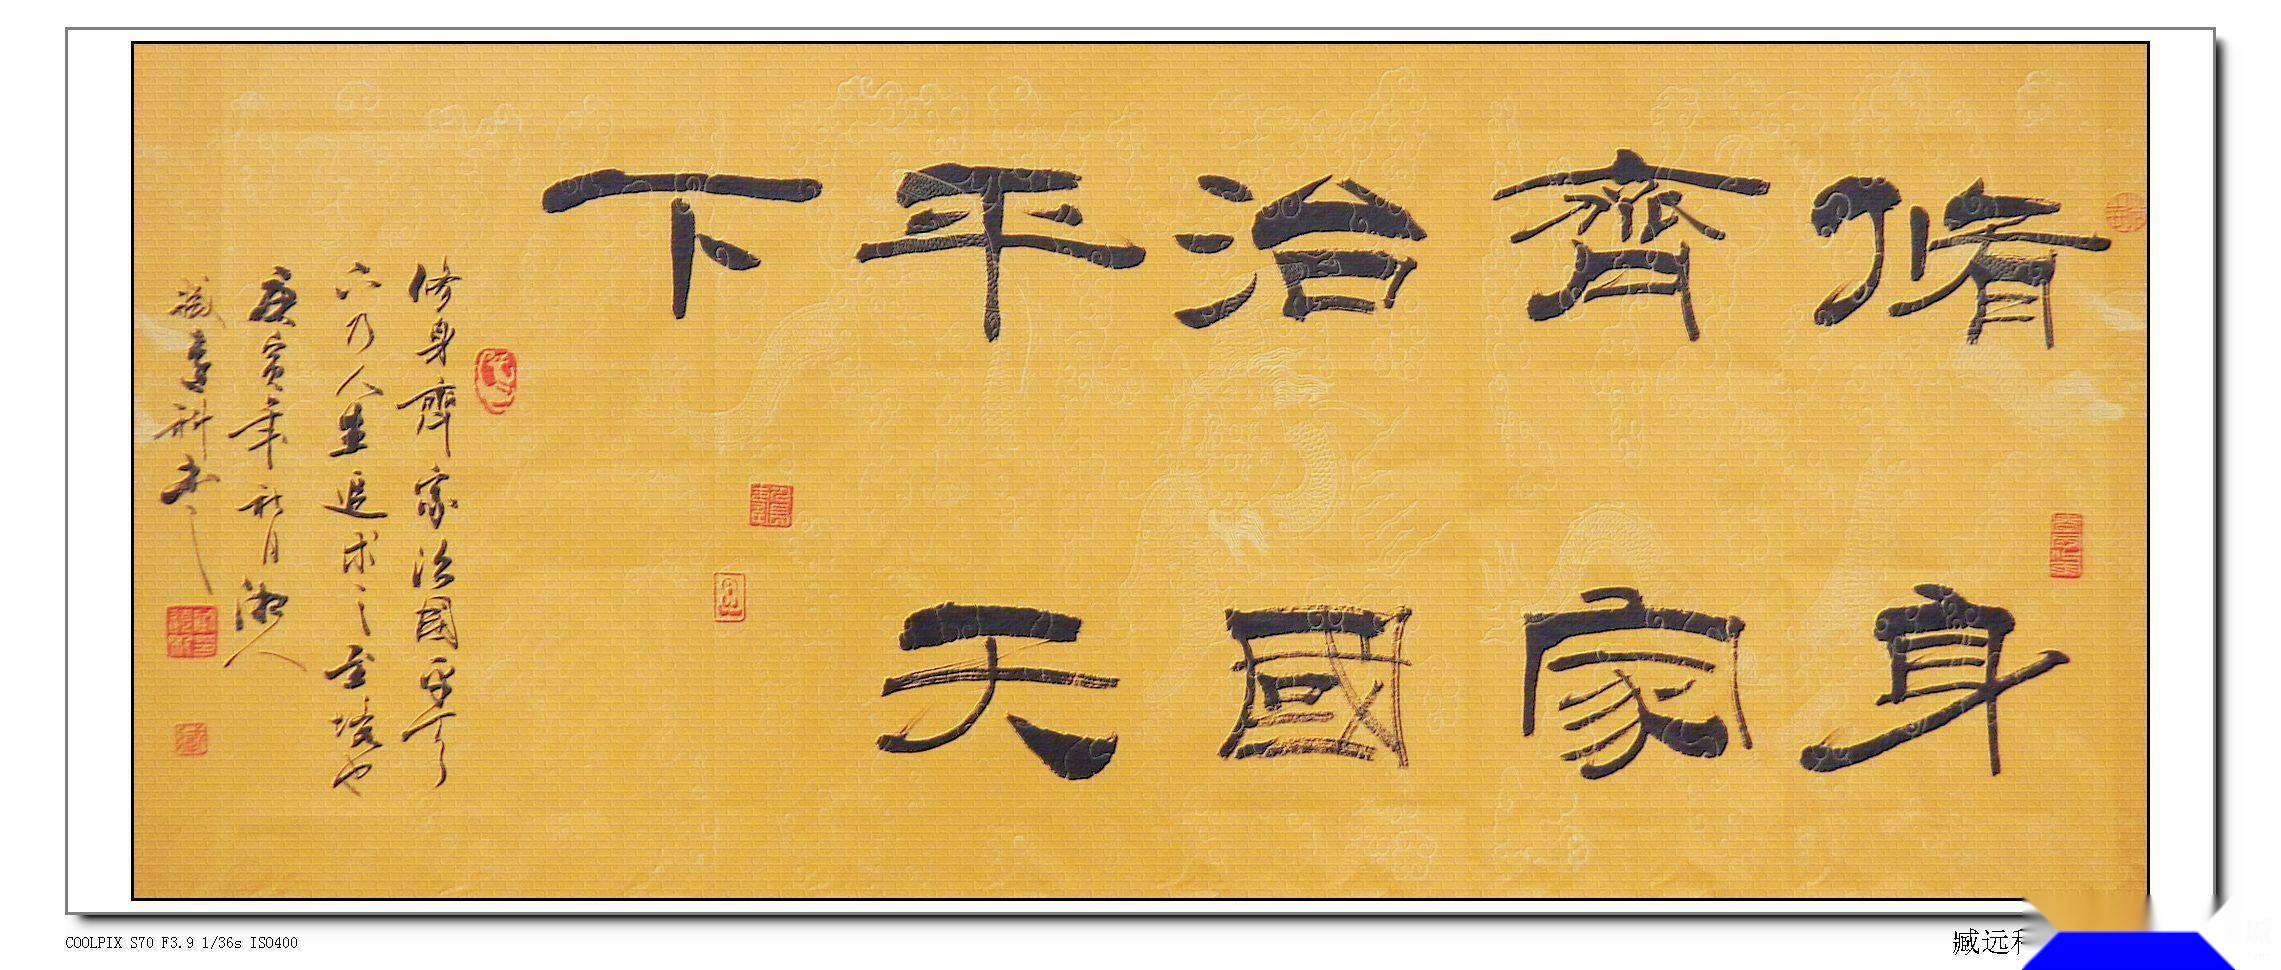 脩身
齊家
治國
平天
下
修身齊家治國平天
下乃人生追求之至境也
庚寅年秋月湘人
臧遠科書
COOLPIX S70 F3.9 1/36s ISO400
臧远科